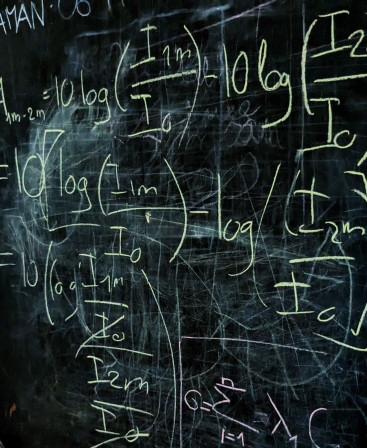 AMAN. 06
1m-2m = 10 log (I1m/I0) - 10 log (I2/I0
= 10 [log (I1m/I0) - log (I2m/I0)
= 10 (log I1m/I0 / I2m/I0)
0 = Σ i=1 n λ (